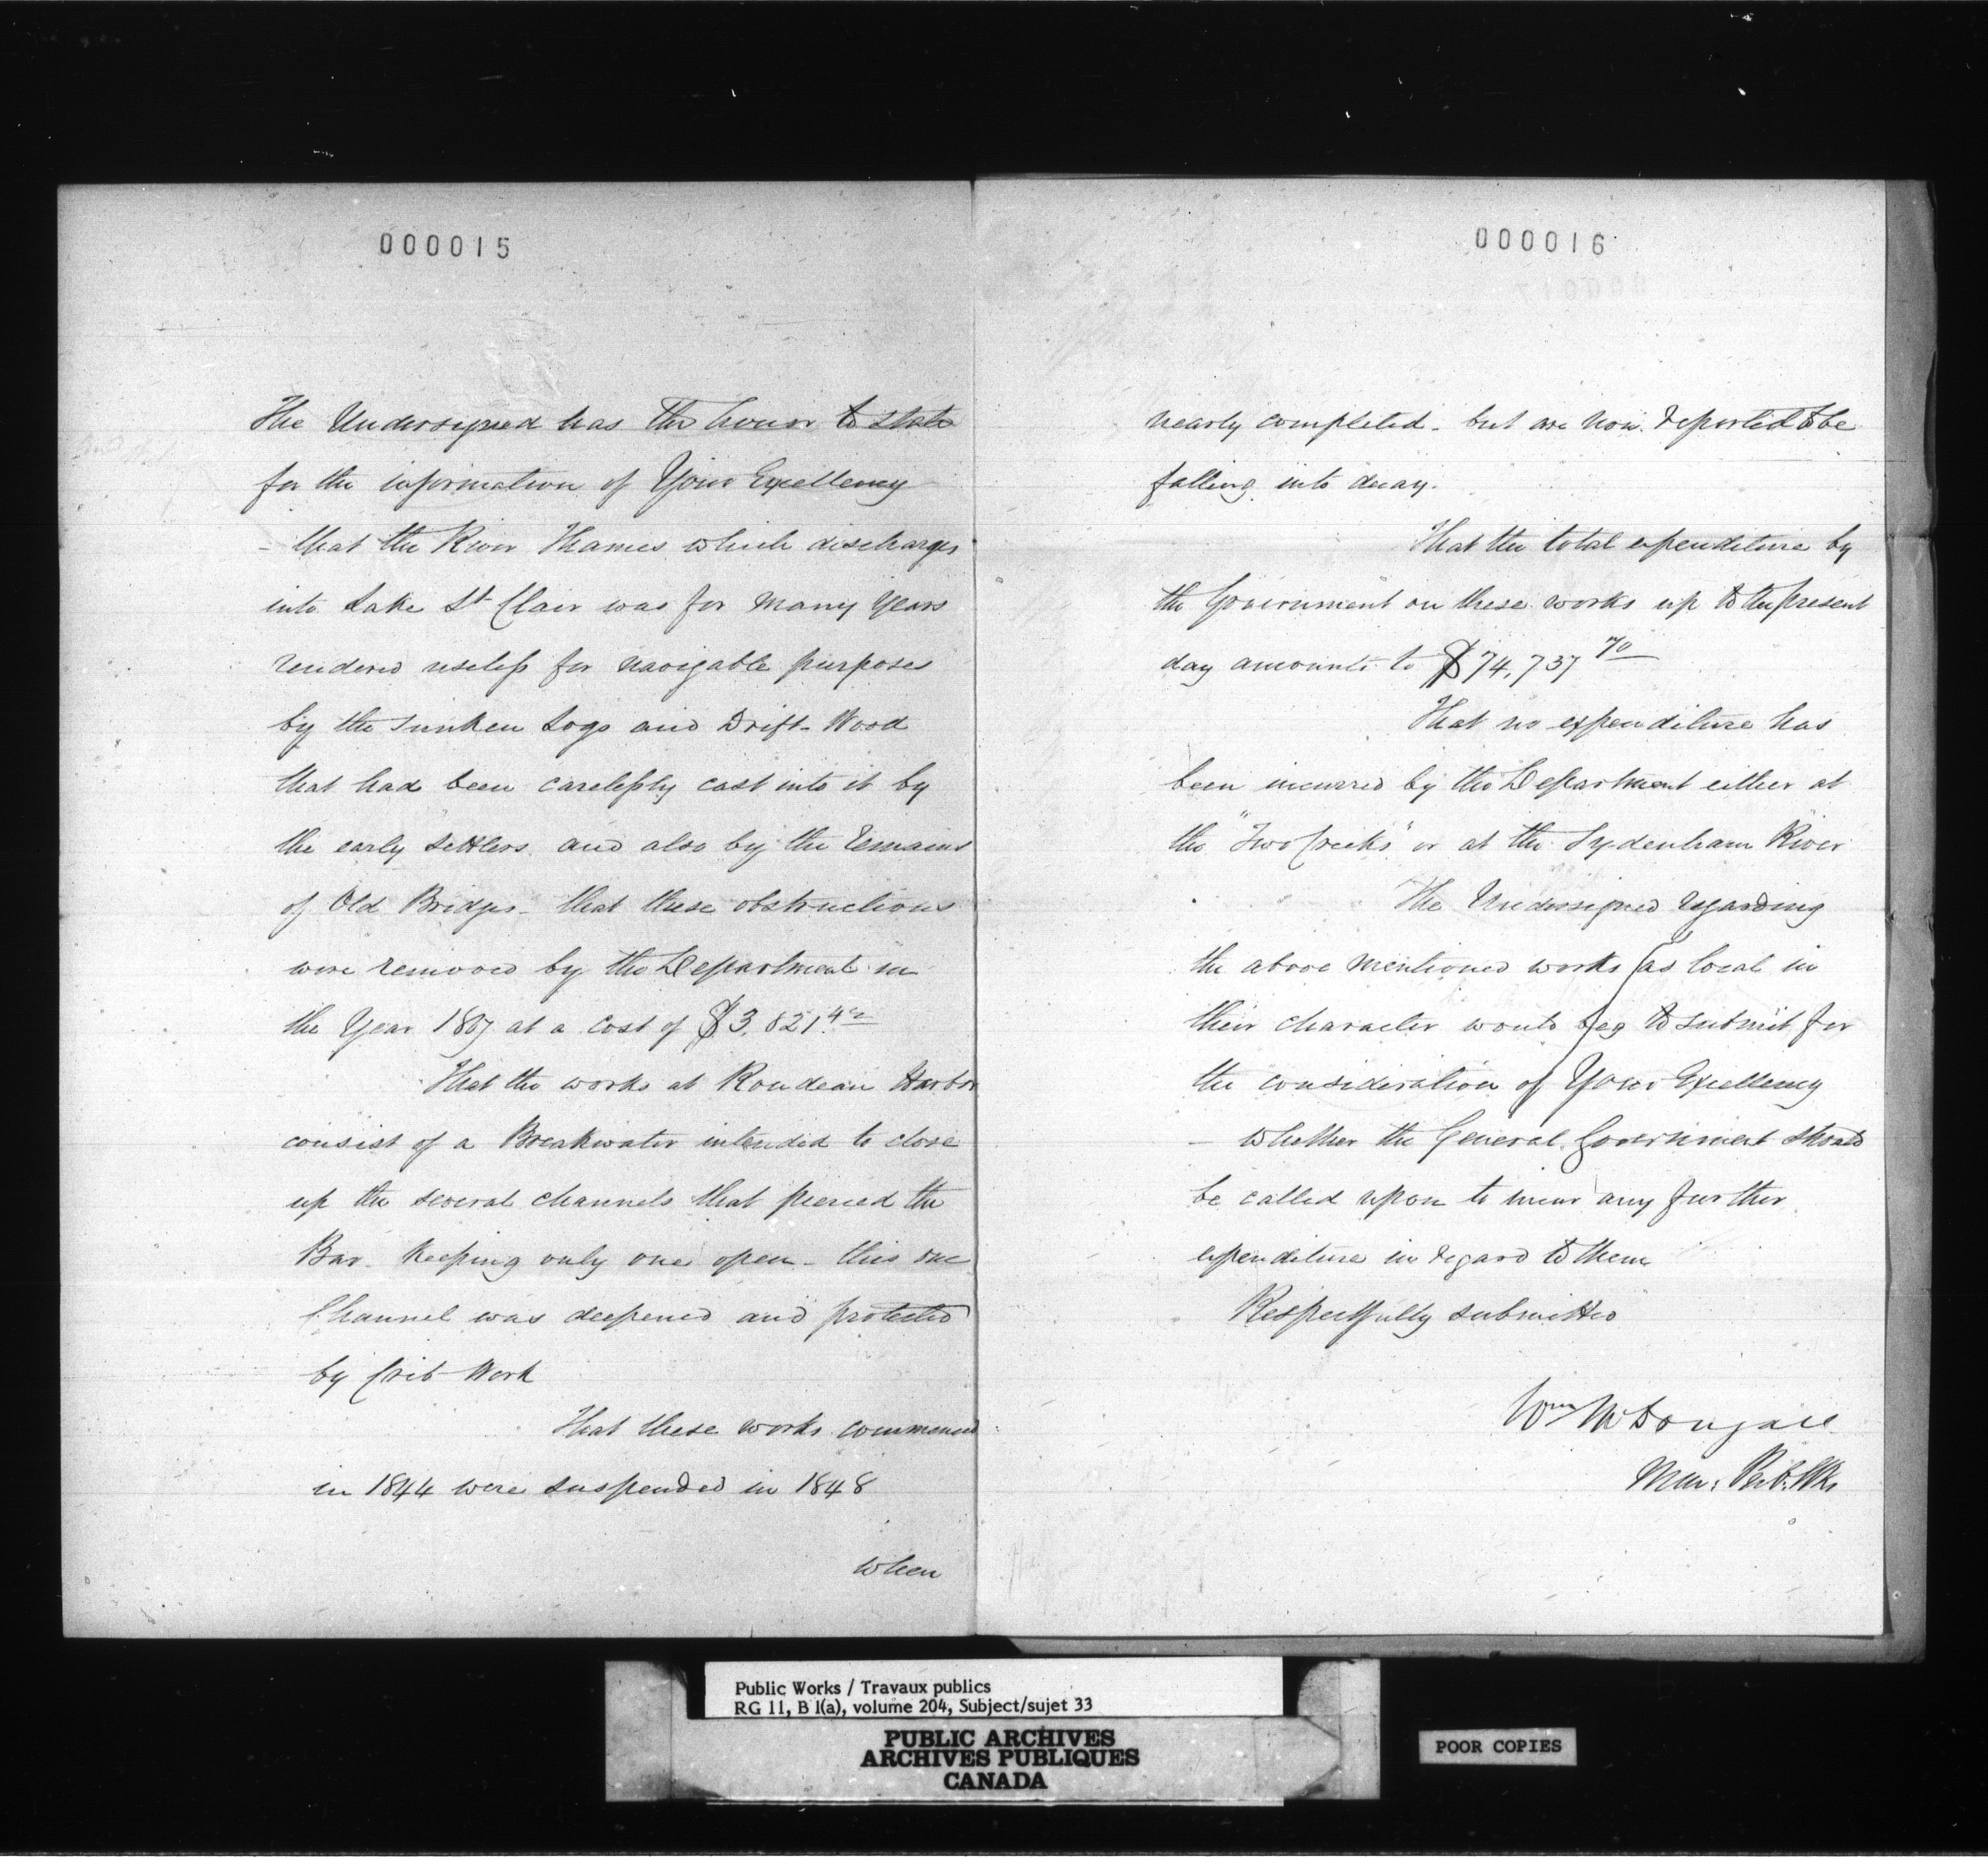 000015
The Undersigned has the honor to state
for the information of Your Excellency
- that the River Thames which discharges
into Lake St Clair was for many years
rendered useless for navigable purposes
by the sunken Logs and Drift-Wood
that had been carelessly cast into it by
the early settlers and also by the remains
of Old Bridges - that these obstructions
were removed by the Department in
the Year at a cost of $3,821.42
That the works at Rondeau Harbor
consist of a Breakwater intended to close
up the several channels that pierced the
Bar - Keeping only one open - this one
Channel was deepened and protected
by Crib-Work
That these works commenced
in 1844 were suspended in 1848
when
000016
nearly completed - but are now reported to be
falling into decay.
That the total expenditure by
the Government on these works up to the present
day amounts to $74,737 70
That no expenditure has
been incurred by the Department either at
the "Two Creeks" or at the Sydenham River
The Undersigned regarding
the above mentioned works as local in
their character would beg to submit for
the consideration of Your Excellency
- whether the General Government should
be called upon to incur any further
expenditure in regard to them
Respectfully submitted
Wm McDougall
Min: Pub. Wks
Public Works / Travaux publics
RG 11, B 1(a), volume 204, Subject/sujet 33
PUBLIC ARCHIVES
ARCHIVES PUBLIQUES
CANADA
POOR COPIES